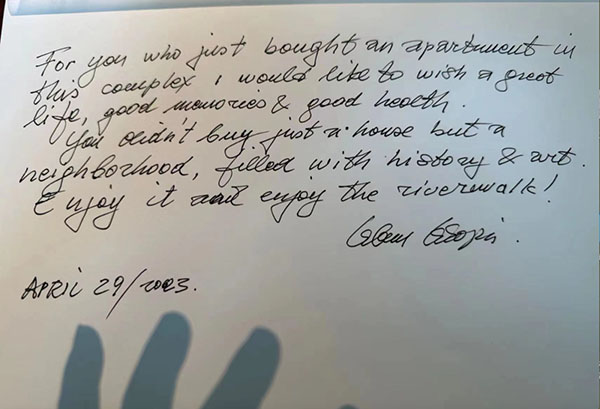 For you who just bought an apartment in
this complex I would like to wish a great
life, good memories & good health.
You didn't buy just a house but a
neighborhood, filled with history & art.
Enjoy it and enjoy the riverwalk!
APRIL 29/2023.